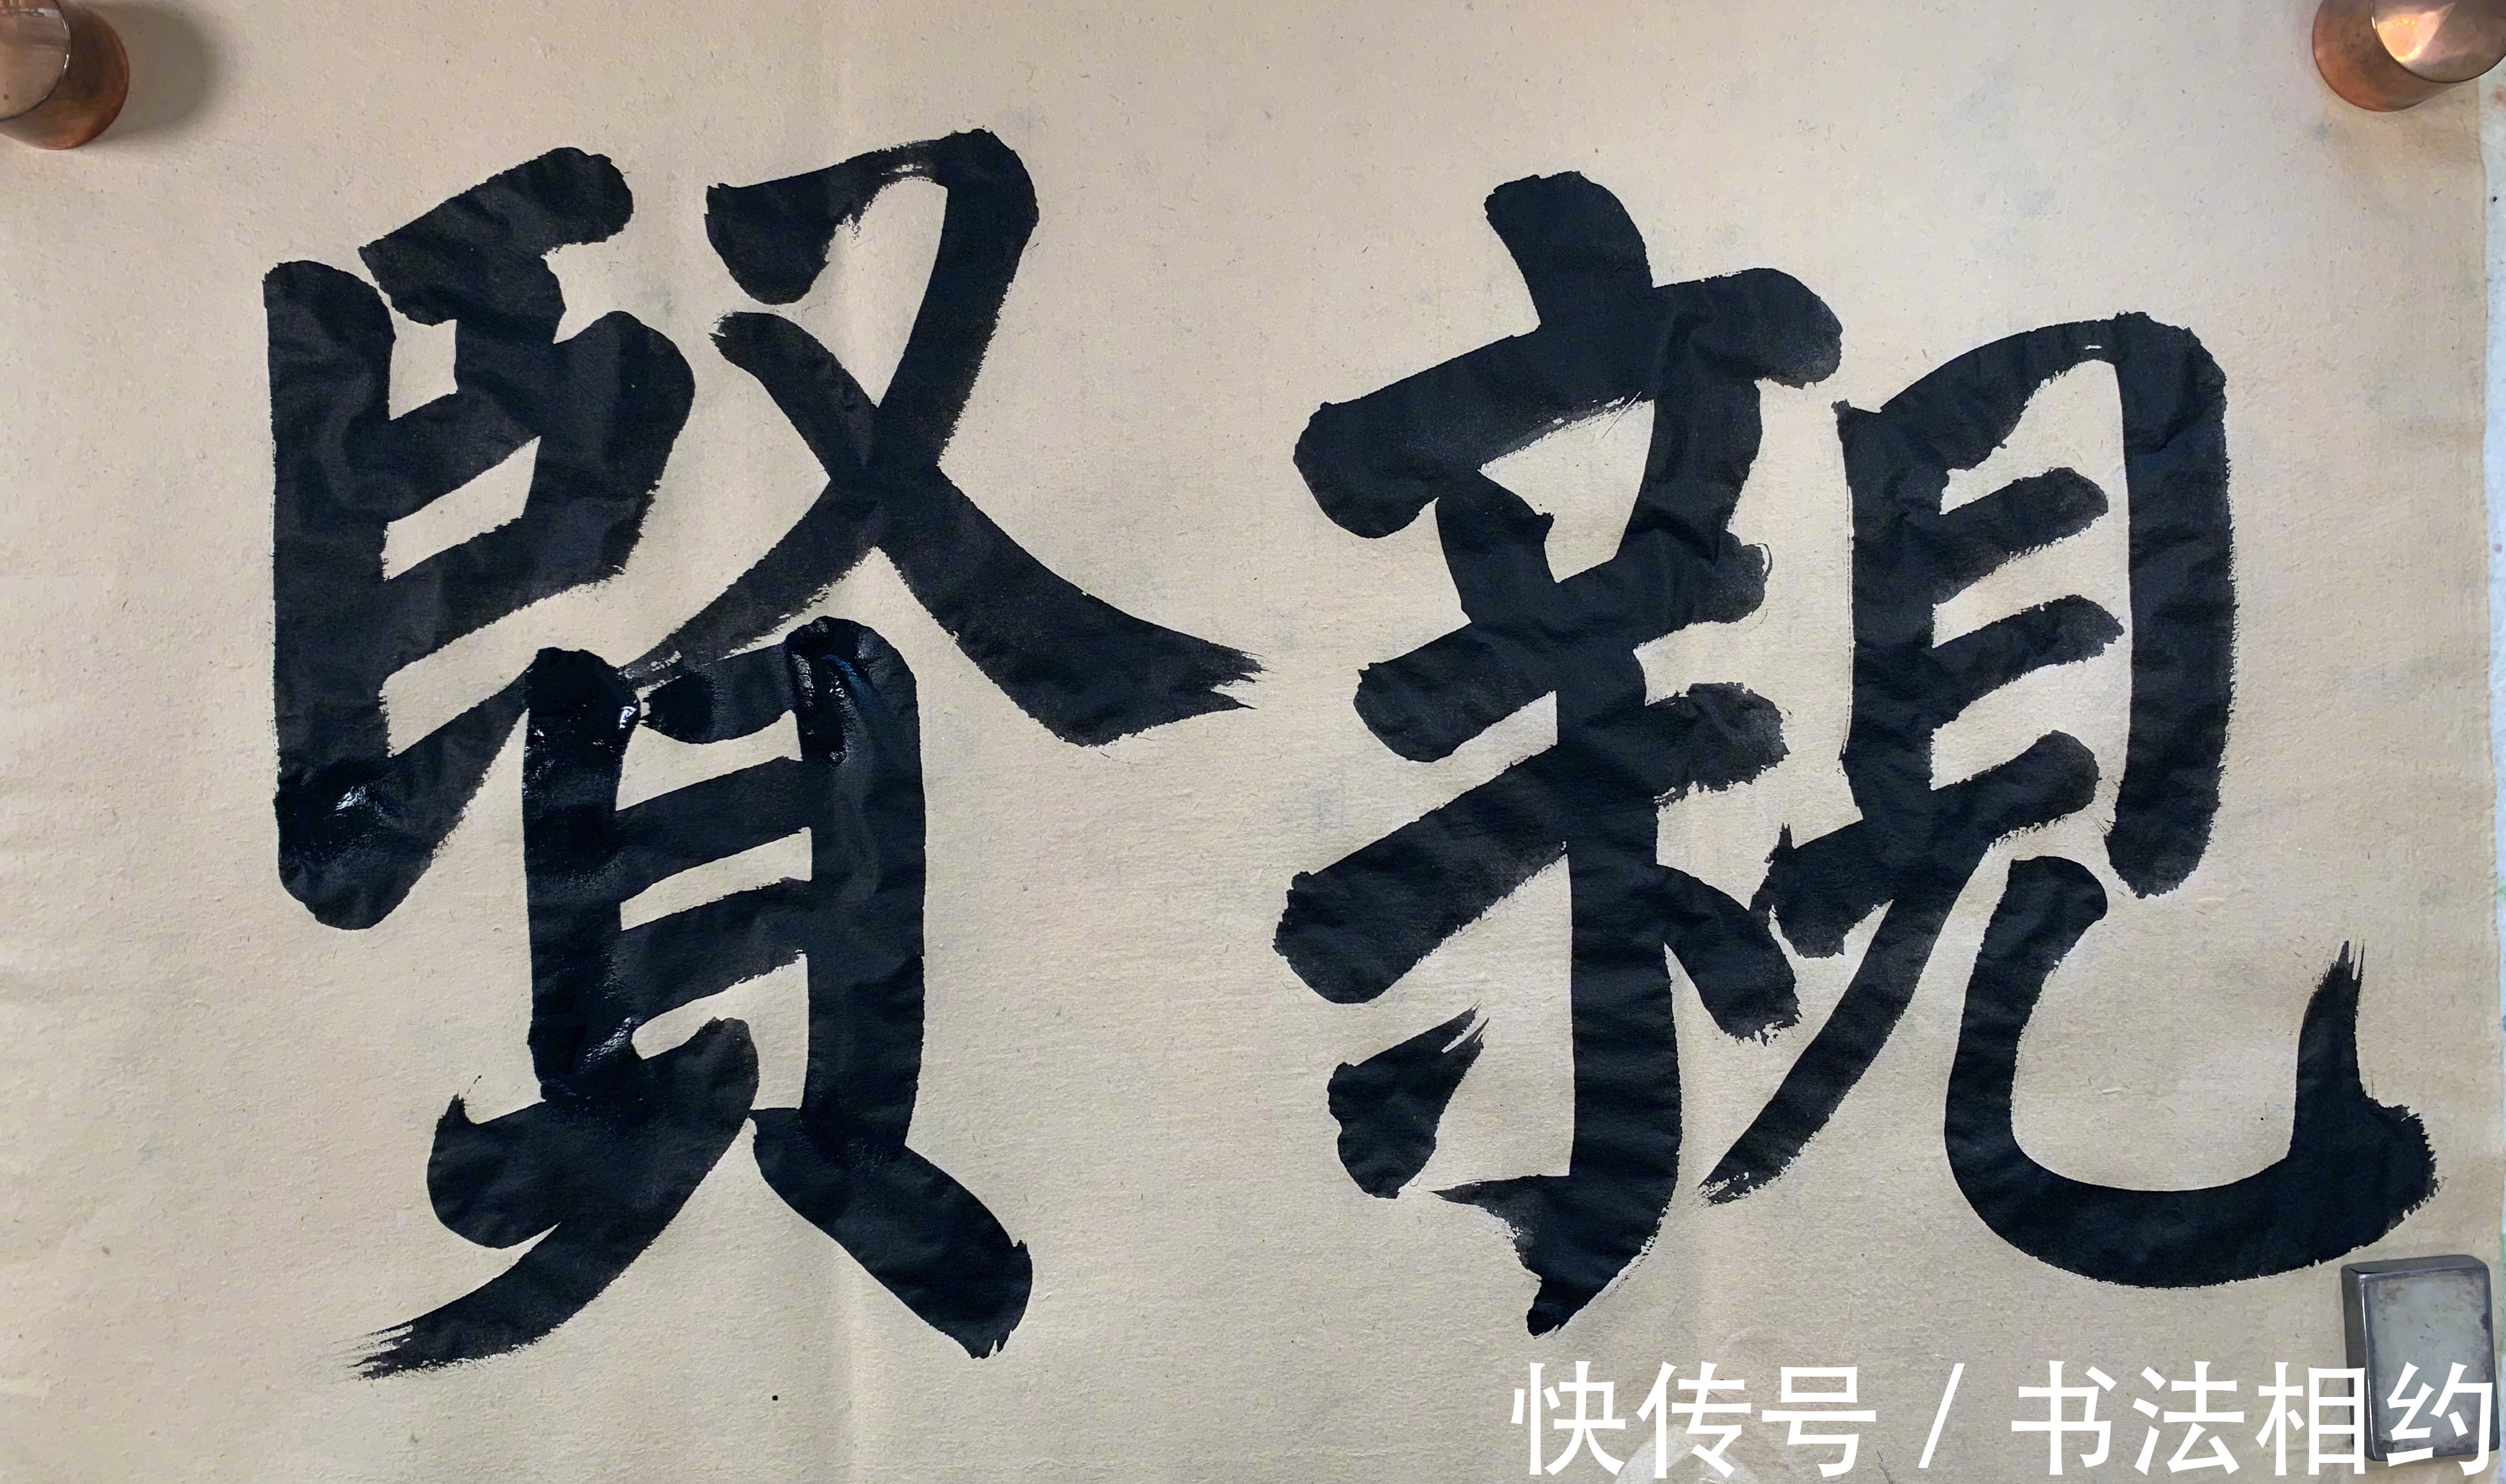 親賢
快传号 / 书法相约